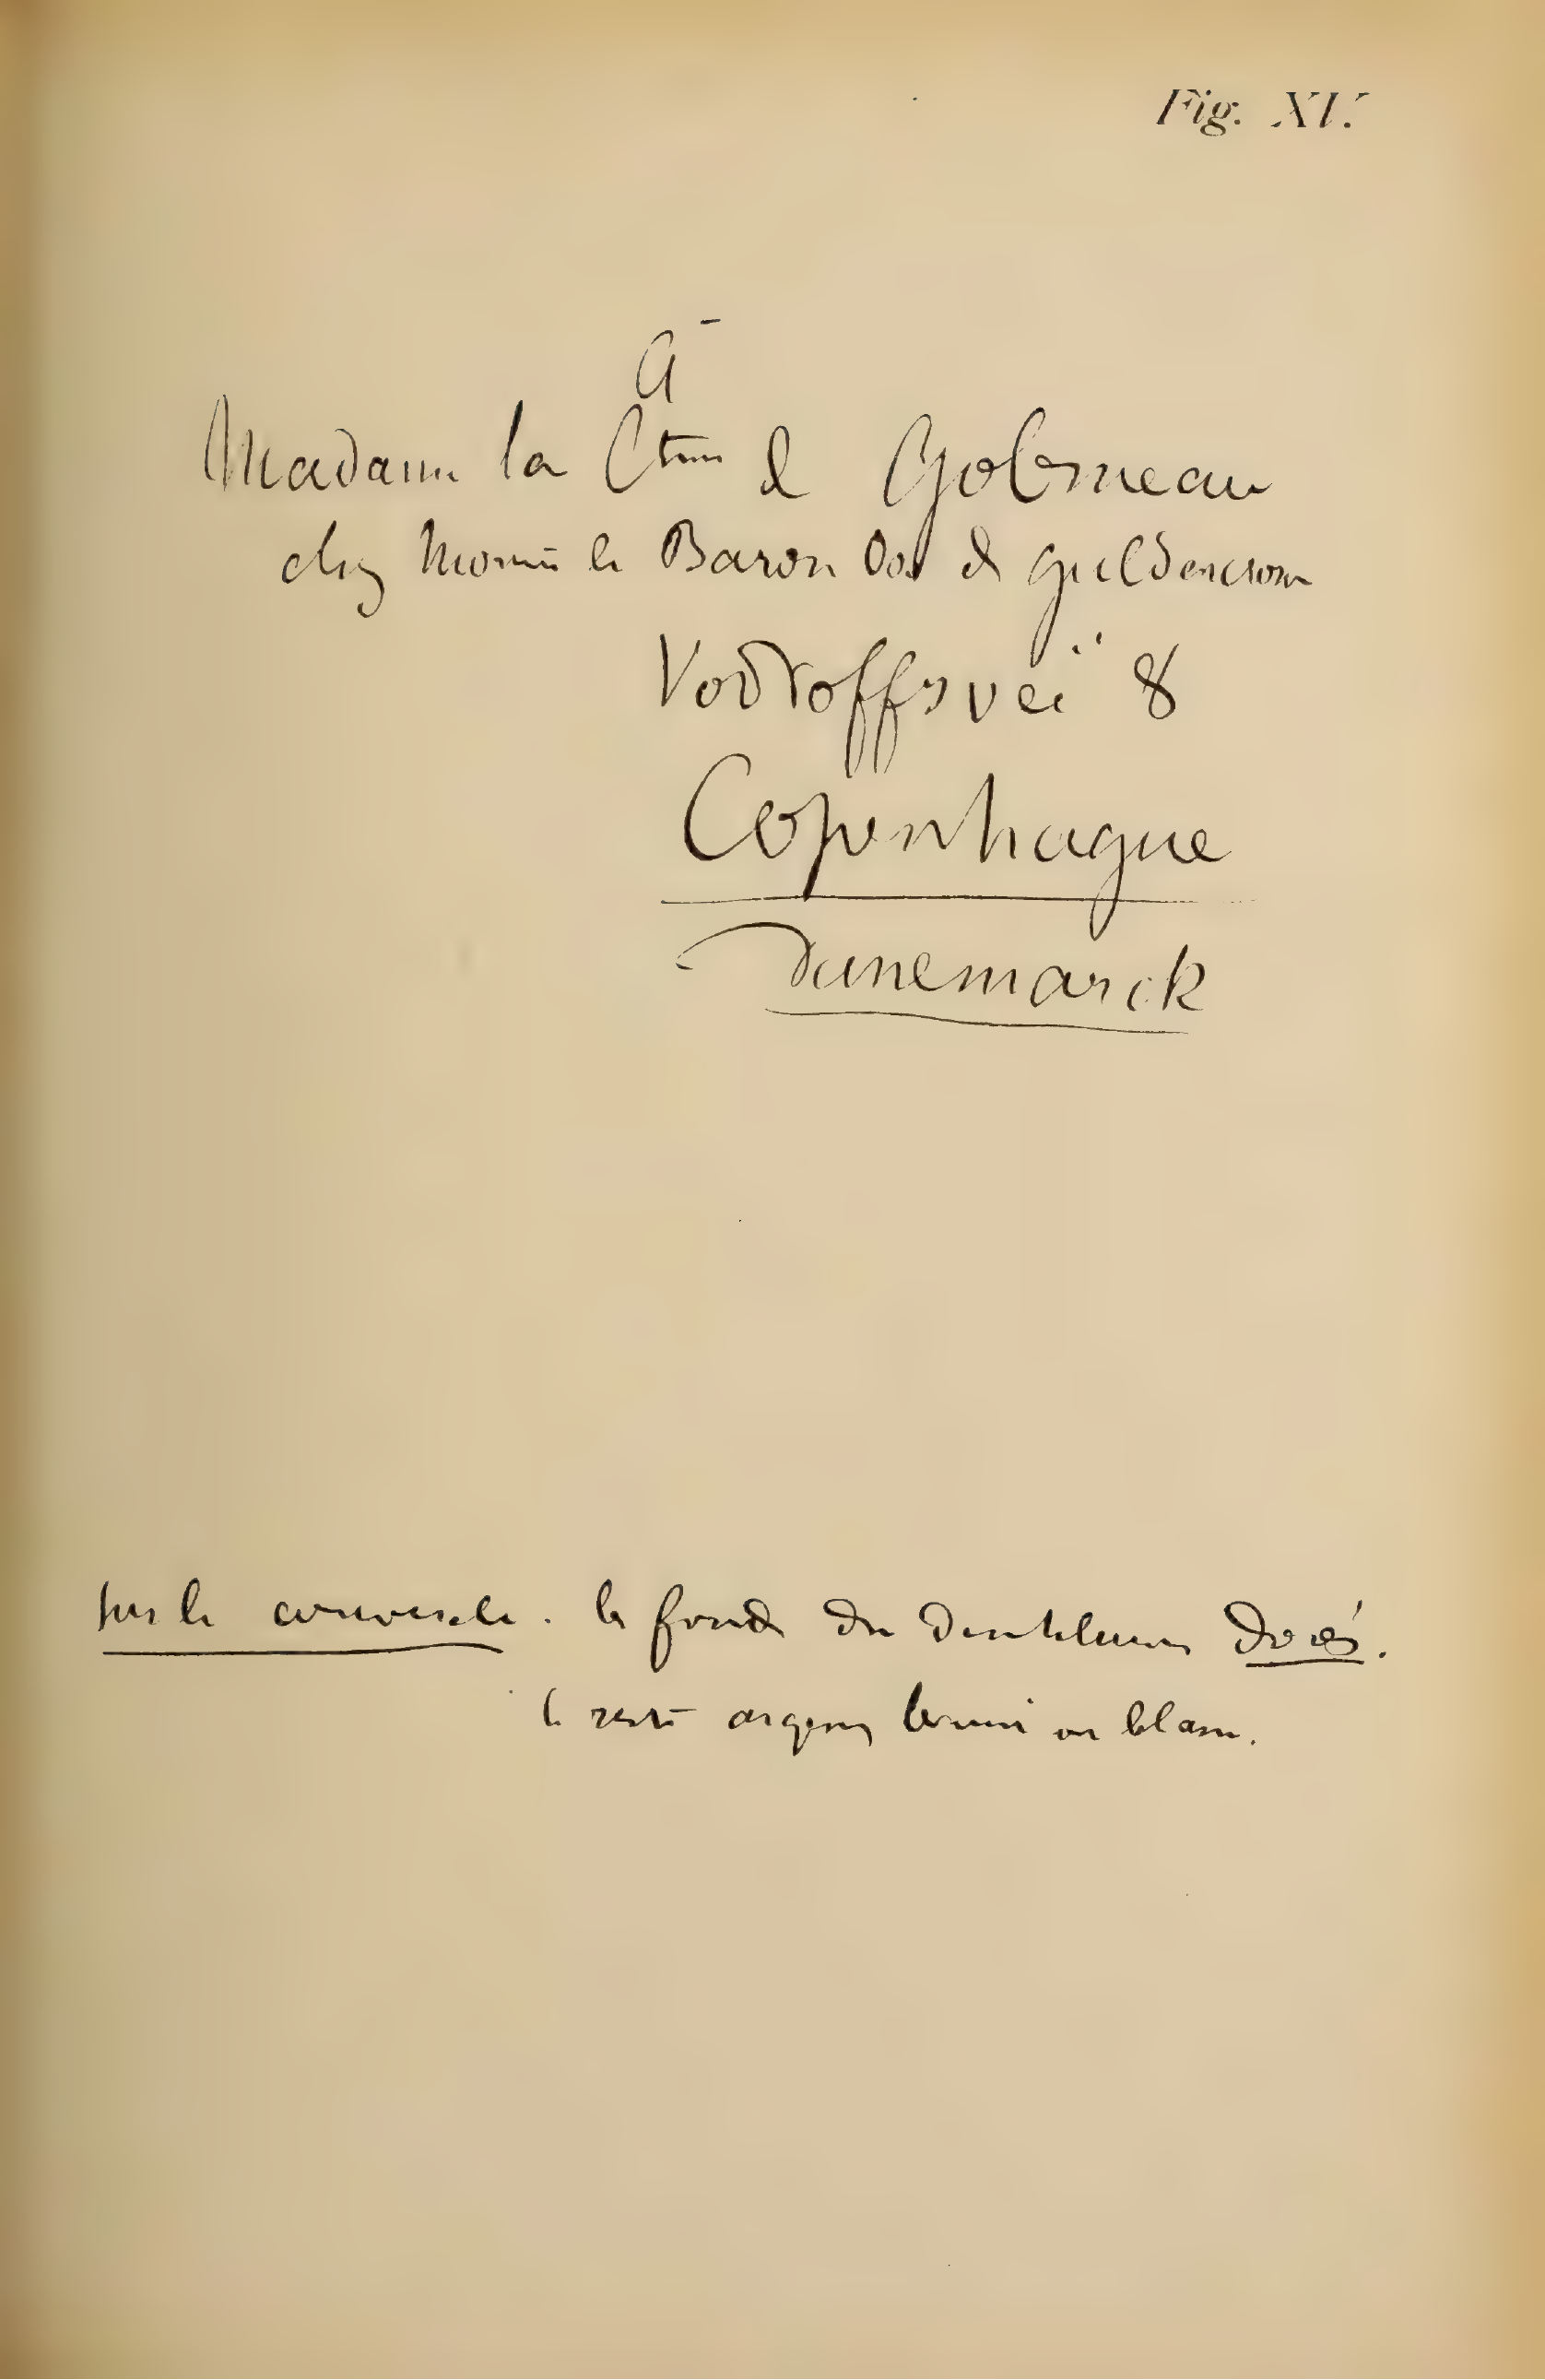 Fig. XV.
À
Madame la Ctesse de Gobineau
chez Monsr le Baron Ove de Guldencrone
Vodroffsveï 8
Copenhague
Danemarck
sur le couvercle. le fond du dentelures dorés.
le reste argent bruni ou blanc.